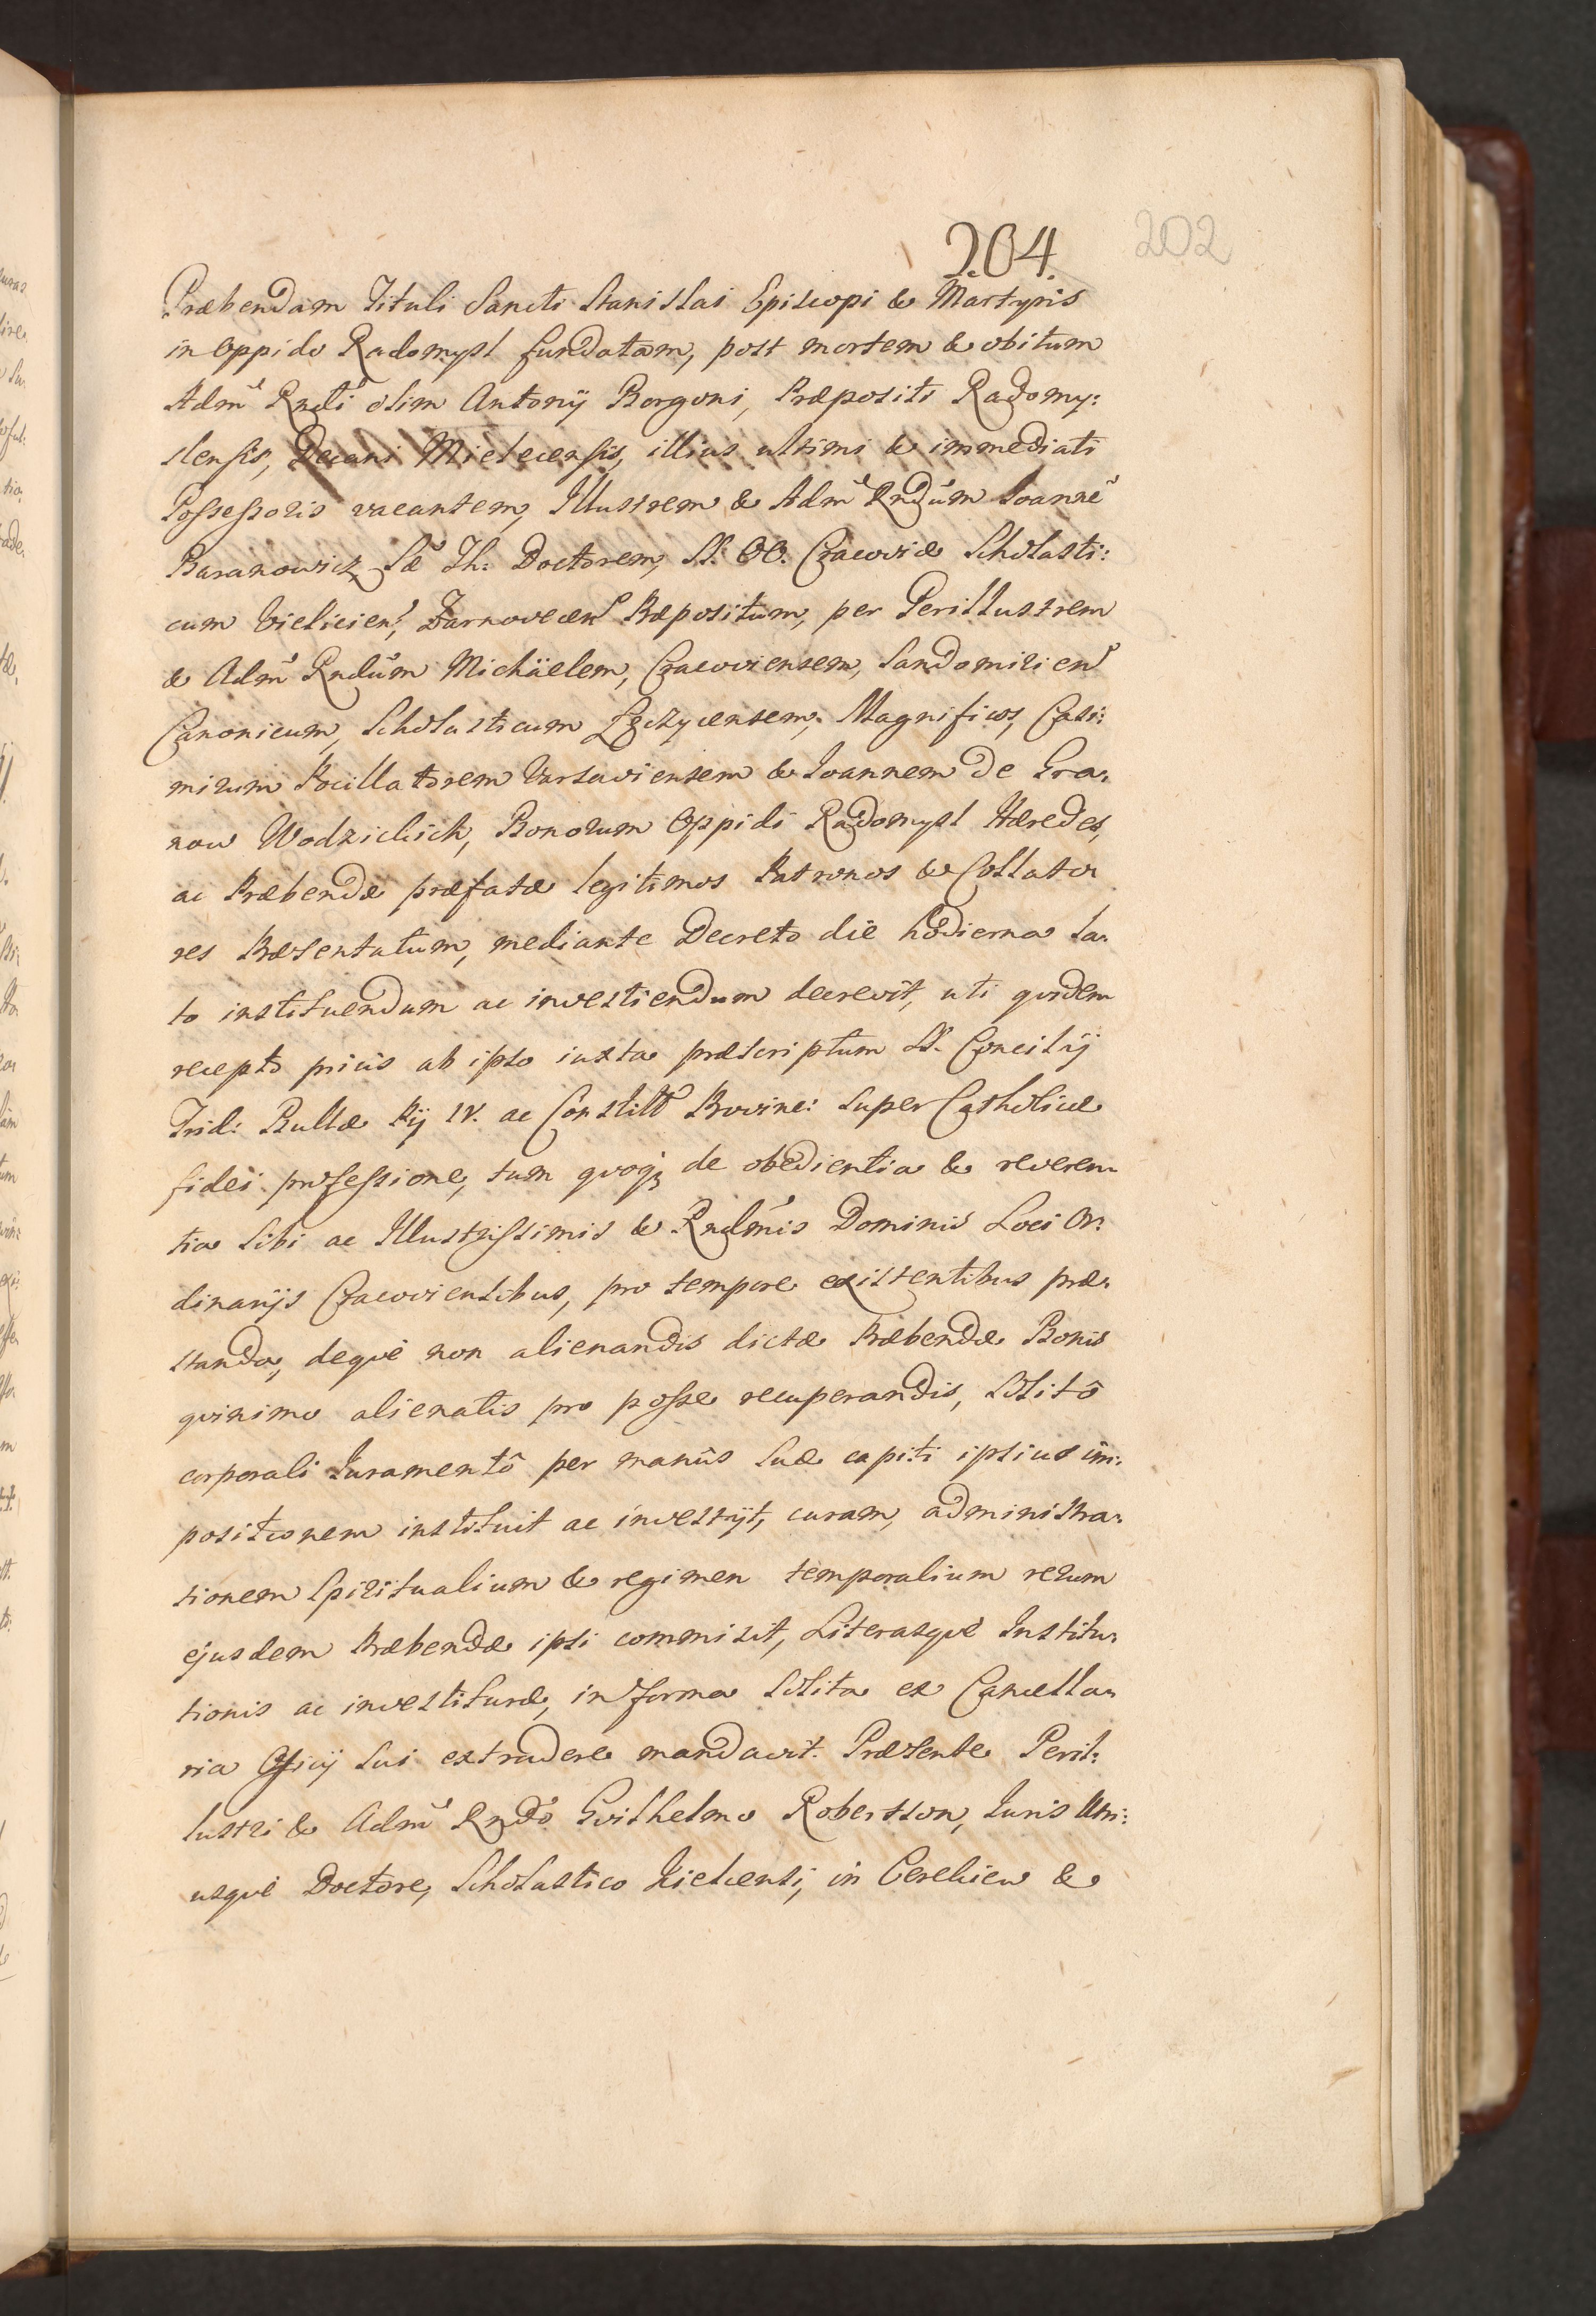 204.
202
Præbendam Tituli Sancti Stanislai Episcopi & Martyris
in Oppido Radomysl fundatam, post mortem & obitum
Adm̃ Rndi olim Antonij Borgoni, Præpositi Radomy:
slensis, Decani Mielecensis, illius ultimi & immediati
Possessoris vacantem, Illustrem & Adm̃ Rndum Joannẽ
Baranowicz Sæ Th: Doctorem, SS. OO. Cracoviæ Scholasti:
cum Vieliciens̃, Præpositum, per Perillustrem
& Adm̃ Rndum Michäelem, Cracoviensem, Sandomirien̄
Canonicum, Scholasticum Lęczycensem, Magnificos, Casi:
mirum Pocillatorem Varsaviensem & Joannem de Gra:
now Wodzickich, Bonorum Oppidi Radomysl Hæredes,
ac Præbendæ præfatæ legitimos Patronos & Collato:
res Præsentatum, mediante Decreto die hodierna la:
to instituendum ac investiendum decrevit, uti quidem
recepto prius ab ipso iuxta præscriptum SS. Concilij
Trid: Bullæ Pij IV. ac Constitt Provinc: super Catholicæ
fidei professione, tum quoq; de obedientia & reveren:
tia sibi ac Illustrissimis & Rndmis Dominis Loci Or:
dinarijs Cracoviensibus, pro tempore existentibus præ:
standa, deque non alienandis dictæ Præbendæ Bonis
quinimo alienatis pro posse recuperandis, solitô
corporali Juramentô per manûs suæ capiti ipsius im:
positionem instituit ac investijt, curam, administra:
tionem Spiritualium & regimen temporalium rerum
ejusdem Præbendæ ipsi commisit, Literasque Institu:
tionis ac investituræ, in forma solita ex Cancella:
ria Officij sui extradere mandavit. Præsente Peril:
lustri & Adm̃ Rndo Guilhelmo Robertson, Juris Utri:
usque Doctore, Scholastico Kielcensi, in &